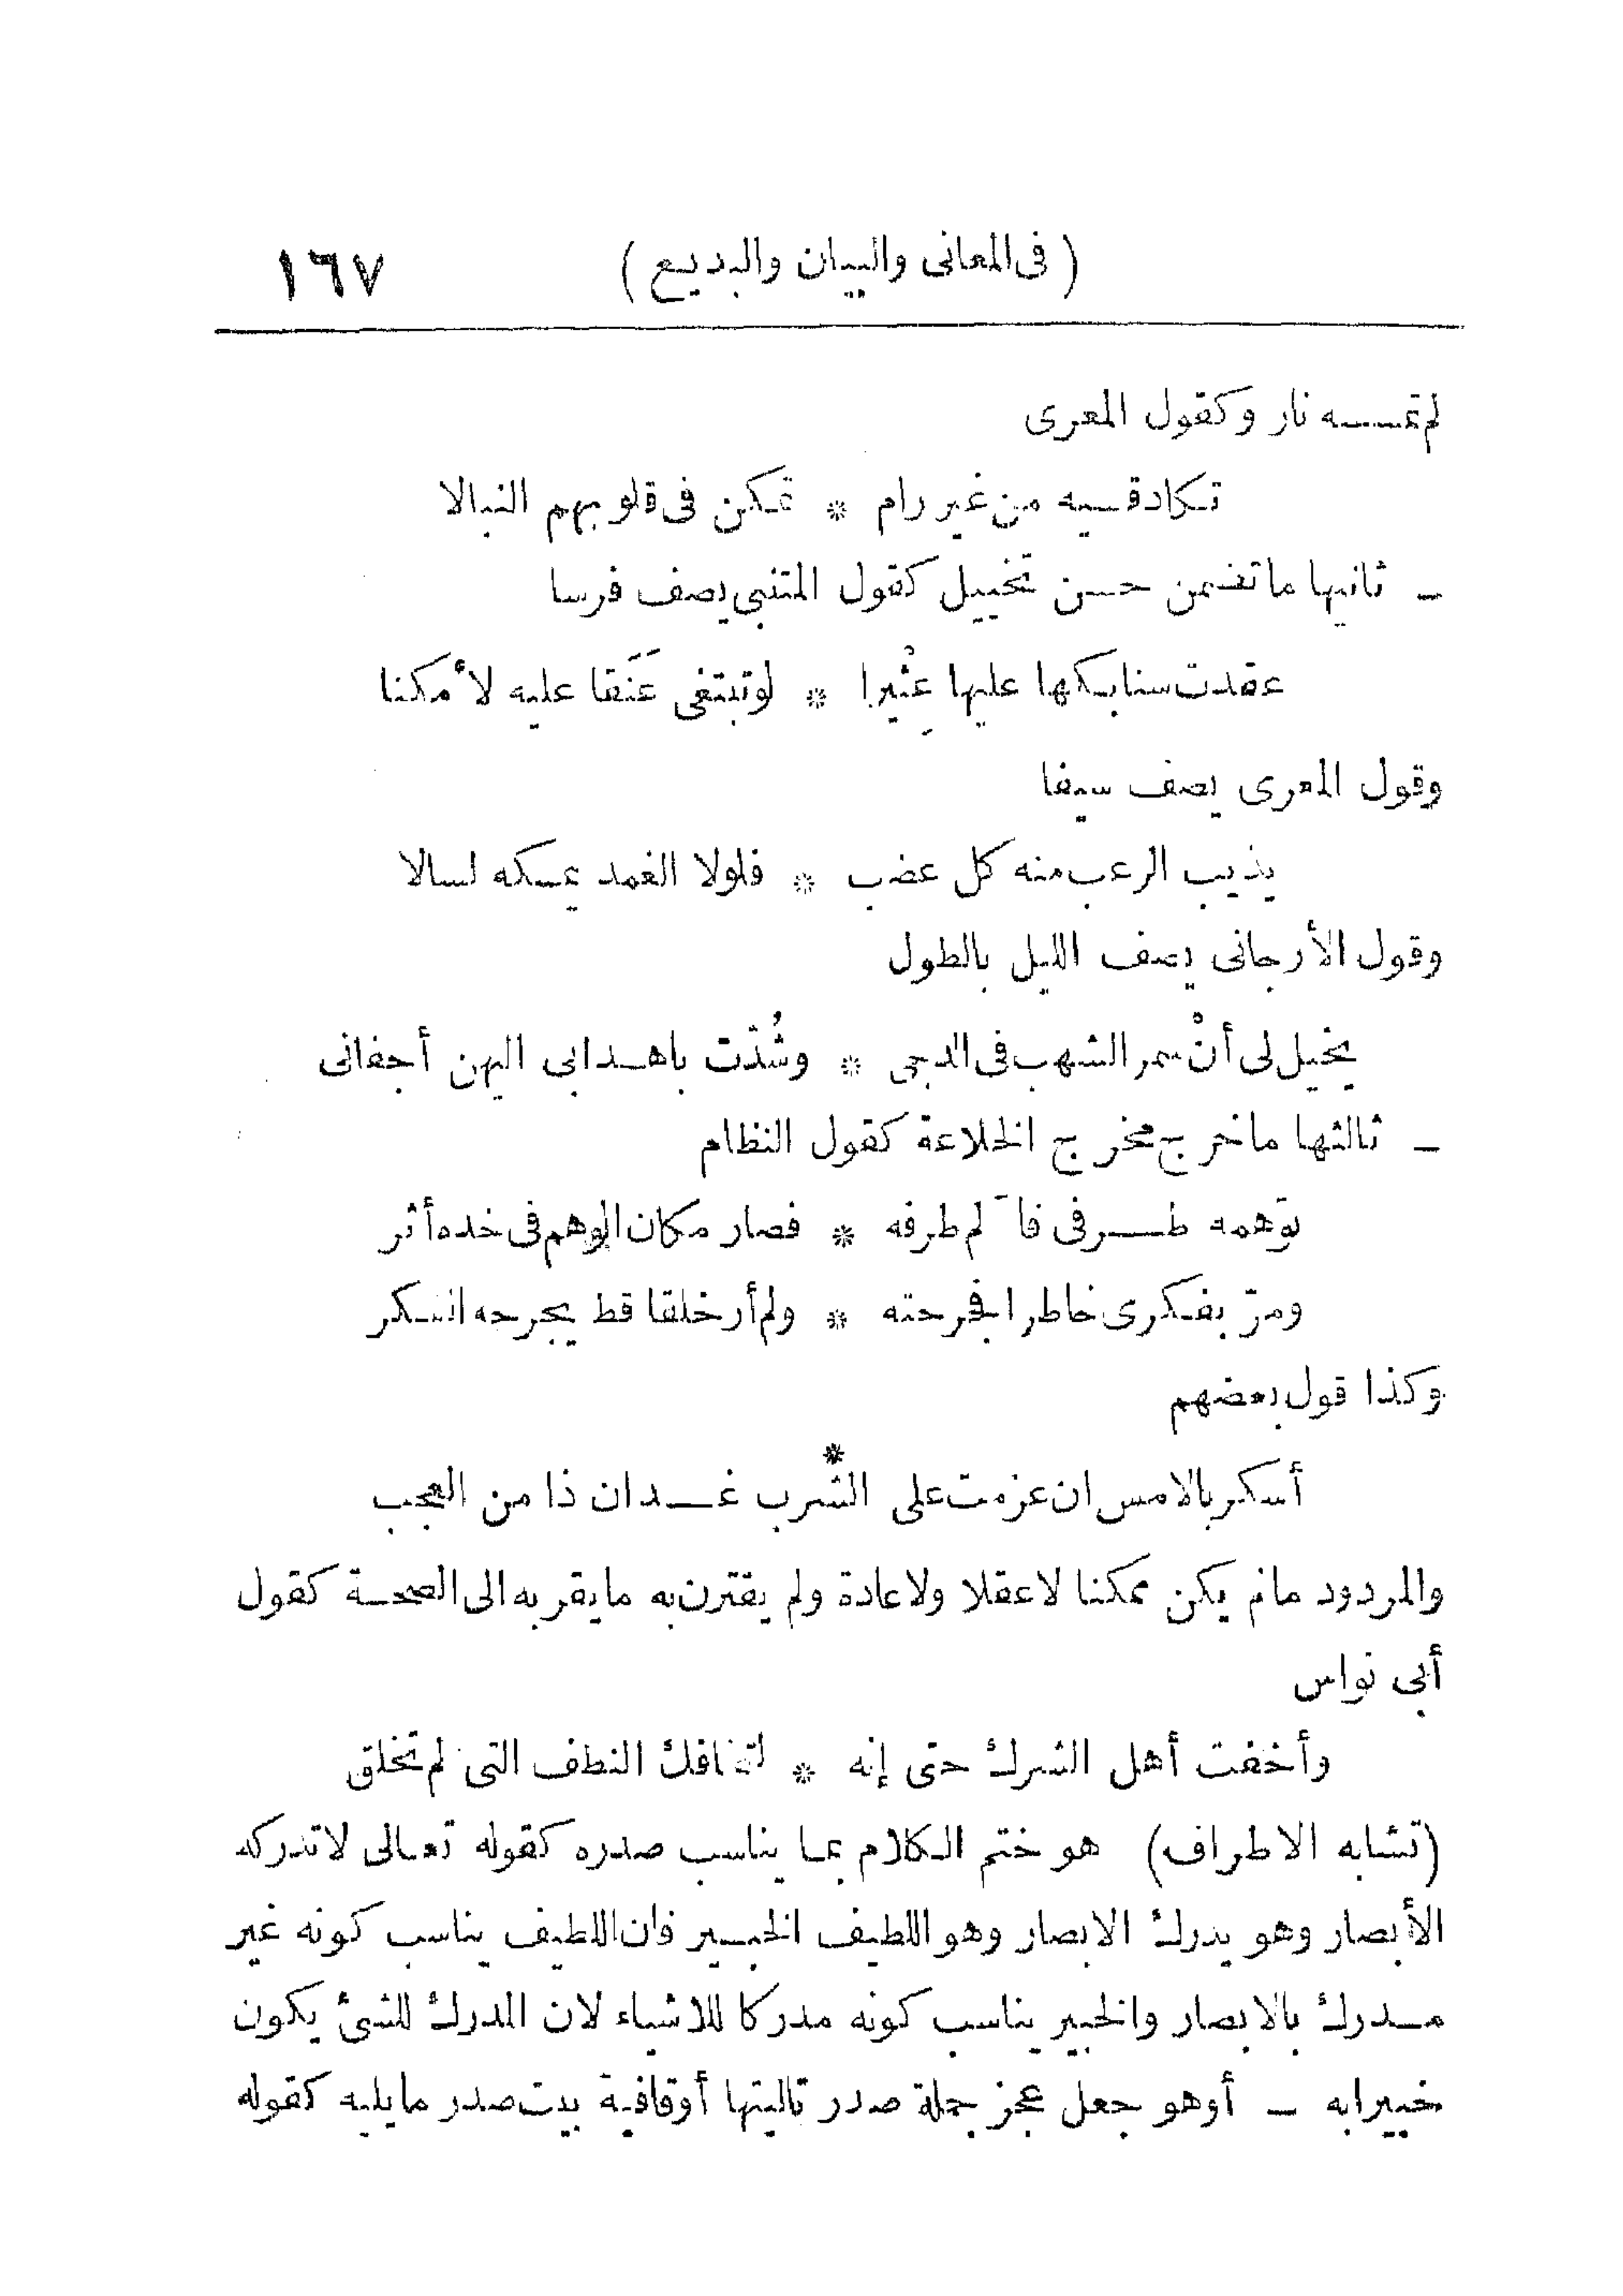 (فى المعانى والبيان والبديع) ١٦٧
لم تمسسه نار وكقول المعرى
تكاد قسيه من غير رام * تمكن فى قلوبهم النبالا
ـ ثانيها ما تضمن حسن تخييل كقول المتنبى يصف فرسا
عقدت سنابكها عليها عِثْيرا * لو تبتغى عَنَقا عليه لأمكنا
وقول المعرى يصف سيفا
يذيب الرعب منه كل عضب * فلولا الغمد يمسكه لسالا
وقول الأرجانى يصف الليل بالطول
يخيل لى أنْ سمر الشهب فى الدجى * وشُدّت باهدابى اليهن أجفانى
ـ ثالثها ما خرج مخرج الخلاعة كقول النظام
توّهمه طرفى فآلم طرفه * فصار مكان الوهم فى خده أثر
ومرّ بفكرى خاطرا فجرحته * ولم أر خلقا قط يجرحه الفكر
وكذا قول بعضهم
*
أسكر بالامس ان عزمت على الشّرب غدا ان ذا من العجب
والمردود مالم يكن ممكنا لا عقلا ولا عادة ولم يقترن به ما يقربه الى الصحة كقول
أبى نواس
وأخفت أهل الشرك حتى إنه * لتخافك النطف التى لم تخلق
(تشابه الاطراف) هو ختم الكلام بما يناسب صدره كقوله تعالى لا تدركه
الأبصار وهو يدرك الابصار وهو اللطيف الخبير فان اللطيف يناسب كونه غير
مدرك بالابصار والخبير يناسب كونه مدركا للاشياء لان المدرك للشئ يكون
خبيرا به ـ أوهو جعل عجز جملة صدر تاليتها أو قافية بيت صدر ما يليه كقوله